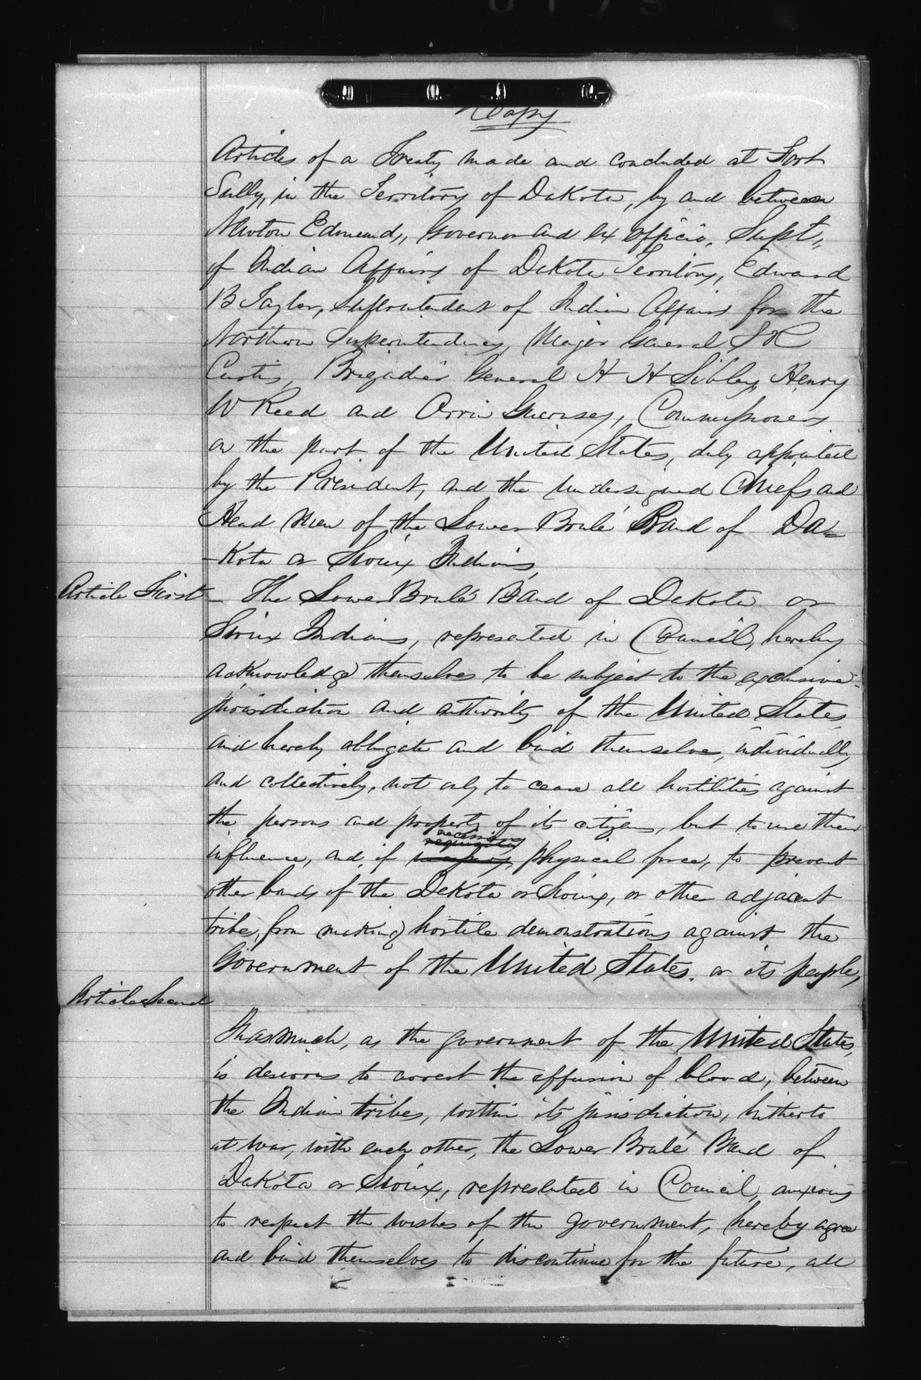 Copy
Articles of a Treaty made and concluded at Fort
Sully, in the Territory of Dakota, by and between
Newton Edmunds, Governor and ex officio, Supt,
of Indian Affairs of Dakota Territory, Edward
B Taylor, Superintendent of Indian Affairs for the
Northern Superintendency, Major General S R
Curtis, Brigadier General H H Sibley, Henry
W Reed and Orrin Guernsey, Commissioners
on the part of the United States, duly appointed
by the President, and the undersigned Chiefs and
Head Men of the Lower Brulé Band of Da=
Kota or Sioux Indians,
Article First - The Lower Brulé Band of Dakota or
Sioux Indians, represented in Council, hereby
acknowledge themselves to be subject to the exclusive
jurisdiction and authority of the United States,
and hereby obligate and bind themselves, individually
and collectively, not only to cease all hostilities against
the persons and property of its citizens, but to use their
necessary
influence, and, if physical force, to prevent
other bands of the Dakota or Sioux, or other adjacent
tribes, from making hostile demonstrations against the
Government of the United States. or its people,
Article Second
Inasmuch, as the government of the United States,
is desirous to arrest the effusion of blood, between
the Indian tribes, within its jurisdiction, hitherto
at war, with each other, the Lower Brulé Band of
Dakota or Sioux, represented in Council, anxious
to respect the wishes of the government, hereby agree
and bind themselves to discontinue for the future, all